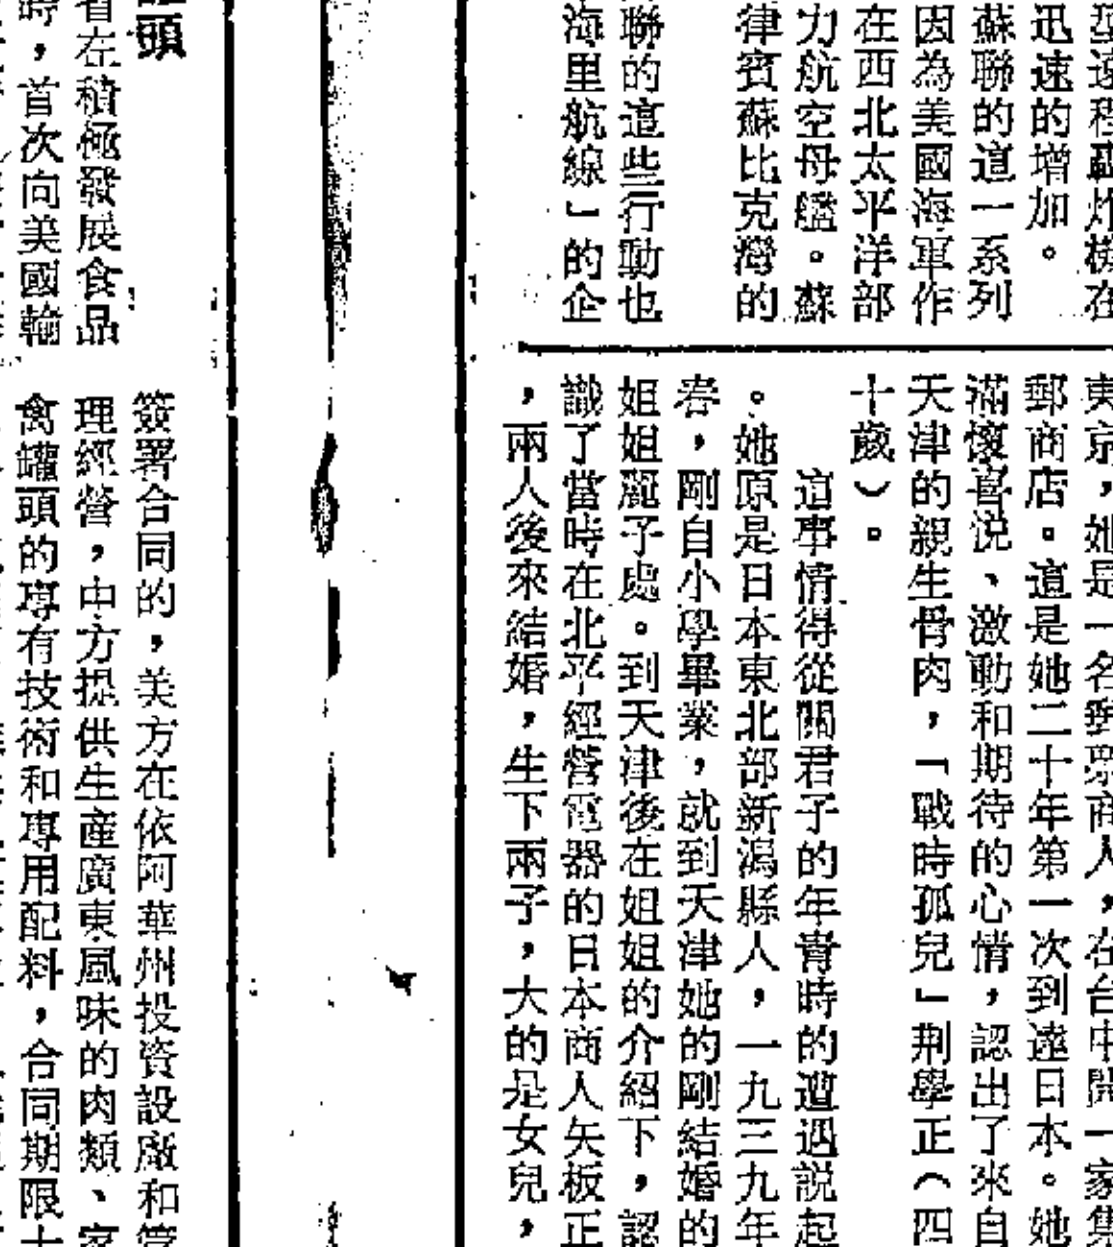 迅速的增加。
蘇聯的這一系列
因為美國海軍作
在西北太平洋部
力航空母艦。蘇
律賓蘇比克灣的
聯的這些行動也
海里航線」的企
東京，她是一名郵票商人，在台中開一家集
郵商店。這是她二十年第一次到達日本。她
滿懷喜悅、激動和期待的心情，認出了來自
天津的親生骨肉，「戰時孤兒」荆學正（四
十歲）。
這事情得從關君子的年青時的遭遇説起
。她原是日本東北部新潟縣人，一九三九年
春，剛自小學畢業，就到天津她的剛結婚的
姐姐麗子處。到天津後在姐姐的介紹下，認
識了當時在北平經營電器的日本商人矢板正
，兩人後來結婚，生下兩子，大的是女兒，
頭
省左積極發展食品
時，首次向美國輸
簽署合同的，美方在依阿華州投資設廠和管
理經營，中方提供生產廣東風味的肉類、家
禽罐頭的專有技術和專用配料，合同期限十